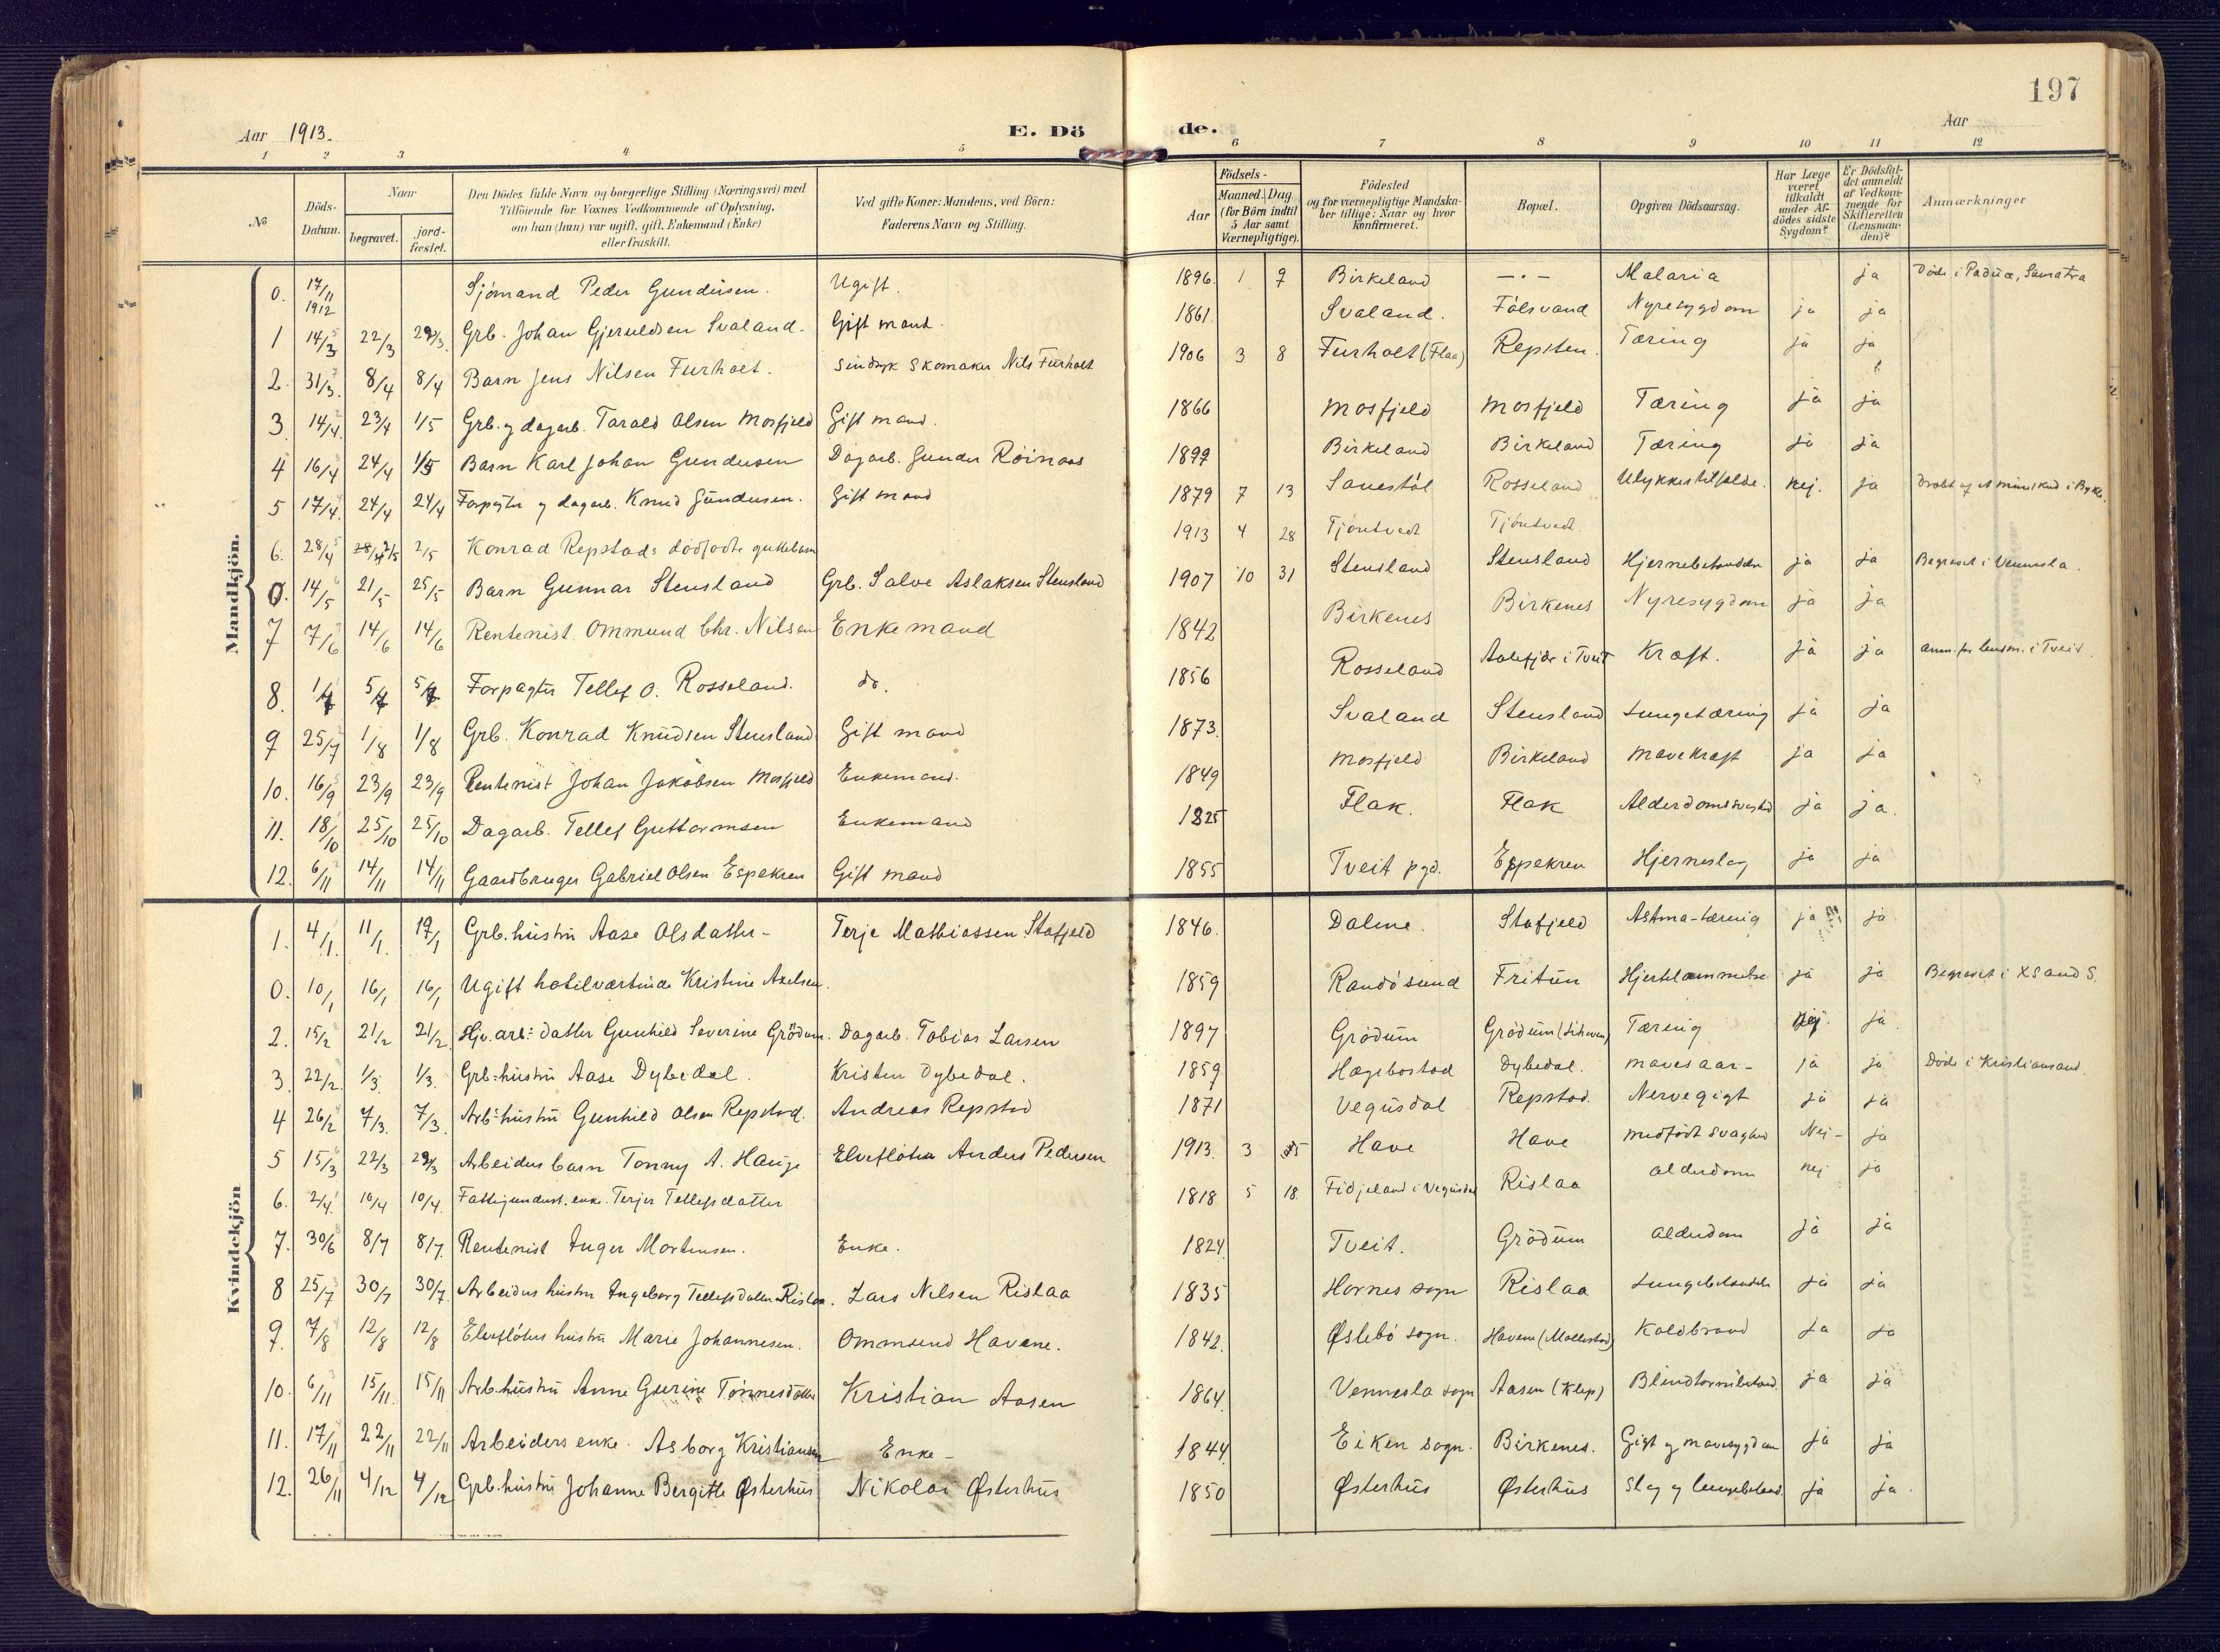 197
Aar 1913.
E. Dö de.
Aar
1 2 3 4 5 6 7 8 9 10 11 12
No
Döds-Datum.
Naar begravet. jord-fæstet.
Den Dödes fulde Navn og borgerlige Stilling (Næringsvei) med Tilföiende for Voxnes Vedkommende af Oplysning, om han (hun) var ugift, gift, Enkemand (Enke) eller fraskilt.
Ved gifte Koner: Mandens, ved Börn: Faderens Navn og Stilling.
Födsels- Aar Maaned. Dag. (for Börn indtil 5 Aar samt Værnepligtige).
Födested og for værnepligtige Mandskaber tillige: Naar og hvor konfirmeret.
Bopæl.
Opgiven Dödsaarsag.
Har Læge været tilkaldt under Afdödes sidste Sygdom?
Er Dödsfaldet anmeldt af Vedkommende for Skifteretten (Lensmanden)?
Anmærkninger
Mandkjön.
0. 17/11 1912 Sjömand Peder Gundersen. Ugift. 1896. 1 9 Birkeland —·— Malaria ja Döde i Padua, Sumatra
1 14/3 22/3 29/3. Grb. Johan Gjeruldsen Svaland. Gift mand. 1861 Svaland. Fålsvand Nyresygdom ja ja
2. 31/3. 8/4 8/4 Barn Jens Nilsen Furholt. Sindsyk Skomaker Nils Furholt 1906 3 8 Furholt (Flaa) Repsten. Tæring ja ja
3. 14/4. 23/4 1/5 Grb. og dagarb. Tarald Olsen Mosfjeld Gift mand. 1866 Mosfjeld Mosfjeld Tæring ja ja
4 16/4 24/4 1/5 Barn Karl Johan Gundersen Dagarb. Gunder Röinaas 1899 Birkeland Birkeland Tæring ja ja
5 17/4. 24/4 24/4 Forpagter og dagarb. Knud Gundersen. Gift mand 1879 7 13 Sauestöl Rosseland Ulykkestilfælde. nej. ja Dræbt af et mineskud i Bykle.
6. 28/4 28/4 2/5 2/5 Konrad Repstads dödfödte guttebarn 1913 4 28 Tjöntvedt Tjöntvedt
0. 14/5 21/5 25/5 Barn Gunnar Stensland Grb. Salve Aslaksen Stensland 1907 10 31 Stensland Stensland Hjernebetændelse ja ja Begravet i Vennesla.
7 7/6 14/6 14/6 Rentenist. Ommund Chr. Nilsen Enkemand 1842 Birkenes Birkenes Nyresygdom ja ja
8. 1/7 5/7 5/7 Forpagter Tellef O. Rosseland. do. 1856 Rosseland Aalefjær i Tveit Kræft. ja ja anm. for lensm. i Tveit.
9 25/7 1/8 1/8 Grb. Konrad Knudsen Stensland Gift mand 1873. Svaland Stensland Lungetæring ja ja
10. 16/9 23/9 23/9 Rentenist Johan Jakobsen Mosfjeld Enkemand. 1849 Mosfjeld Birkeland Mavekræft ja ja
11. 18/10 25/10 25/10 Dagarb. Tellef Guttormsen Enkemand 1825 Flak. Flak Alderdomssvaghed ja ja.
12. 6/11 14/11 14/11 Gaardbruger Gabriel Olsen Espekren Gift mand 1855 Tveit pgd. Eppekren Hjerneslag ja ja
Kvindekjön
1. 4/1. 11/1. 17/1 Grb. hustru Aase Olsdatter- Terje Mathiassen Stafjeld 1846. Dalene. Stafjeld Astma-tæring ja ja
0. 10/1 16/1 16/1 Ugift hotelvertinde Kristine Axelsen. 1859 Randösund Fritun Hjertelammelse ja ja Begravet i XSand S.
2. 15/2 21/2 21/2 Hjv. arb: datter Gunhild Severine Grödum. Dagarb. Tobias Larsen 1897 Grödum Grödum Tæring Nej. ja.
3. 22/2. 1/3. 1/3. Grb: hustru Aase Dybedal. Kristen Dybedal. 1859 Hægebostad Dybedal. mavesaar- ja ja Döde i Kristiansand.
4 26/2 7/3. 7/3. Arb: hustru Gunhild Olsen Repstad. Andreas Repstad 1871 Vegusdal Repstad. Nervegigt ja ja
5 15/3 22/3 29/3 Arbeidersbarn Tonny A. Hauge Elvefløter Anders Pedersen 1913. 3 Have Have medfödt svaghed Nej- ja
6. 2/4. 10/4 10/4. Fattigunderst. enke. Terjer Tellefsdatter 1818 5 18. Fidjeland i Vegusdal Rislaa alderdom nej ja
7. 30/6 8/7 8/7. Rentenist Inger Mortensen. Enke. 1824. Tveit. Grödum alderdom ja ja
8 25/7 30/7 30/7. Arbeiders hustru Ingeborg Tellefsdatter Rislaa. Lars Nilsen Rislaa 1835 Hornes sogn Rislaa Lungebetændelse ja ja
9. 7/8 12/8 12/8 Elvefløters hustru Marie Johannesen. Ommund Havene. 1842. Øslebö sogn. Havene (Mollestad) Koldbrand ja ja
10. 6/11 15/11. 15/11 Arb. hustru Anne Gurine Tönnesdatter Kristian Aasen 1864. Vennesla sogn Aasen (Klep) Blindtarmbetænd. ja ja
11. 17/11 22/11 22/11 Arbeiders enke. Asborg Kristiansen Enke- 1844. Eiken sogn. Birkenes. Gigt og mavesygdom ja ja
12. 26/11 4/12 4/12 Grb. hustru Johanne Bergitte Østerhus Nikolai Østerhus 1850 Østerhus Østerhus Slag og lungebetænd. ja ja.